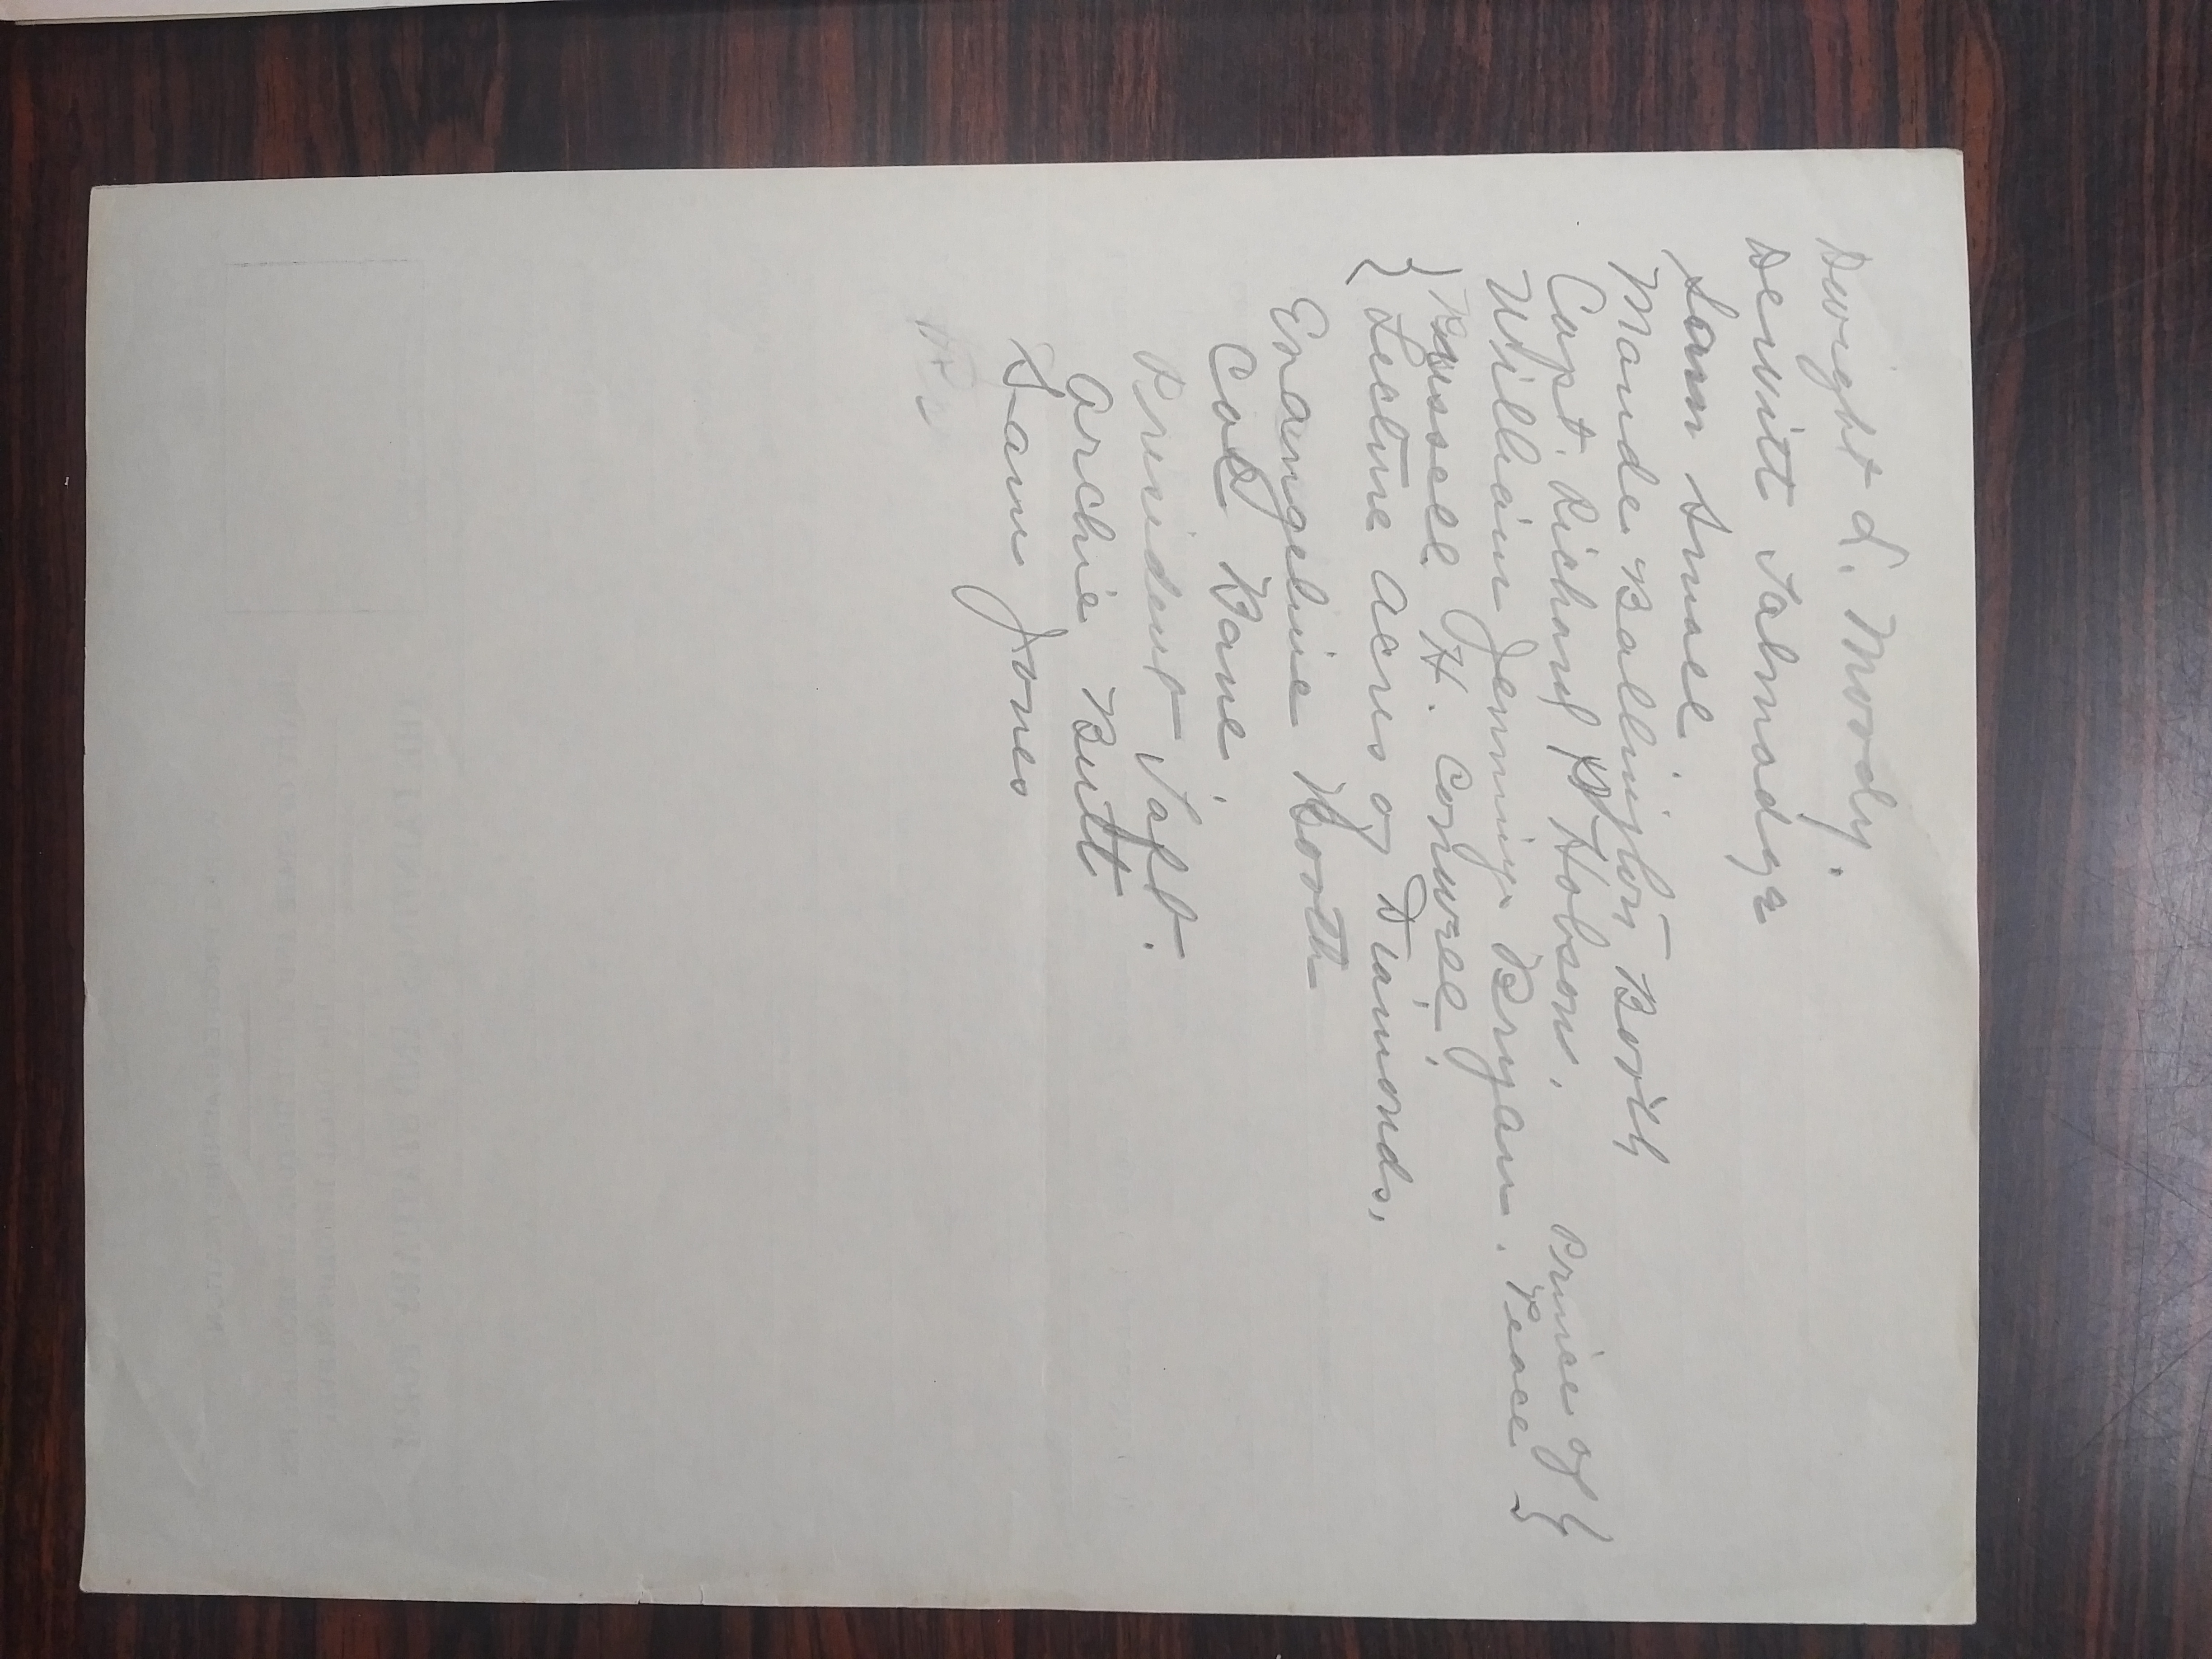 Dwight L. Moody.
Dewitt Talmadge
Sam Small.
Maude Ballington Booth
Capt. Richard P Hobson. Prince of }
William Jennings Bryan. Peace }
{ Russell H. Conwell.
{ Lecture Acres of Diamonds.
Evangeline Booth
Col Bane.
President Taft.
Archie Butt
Sam Jones